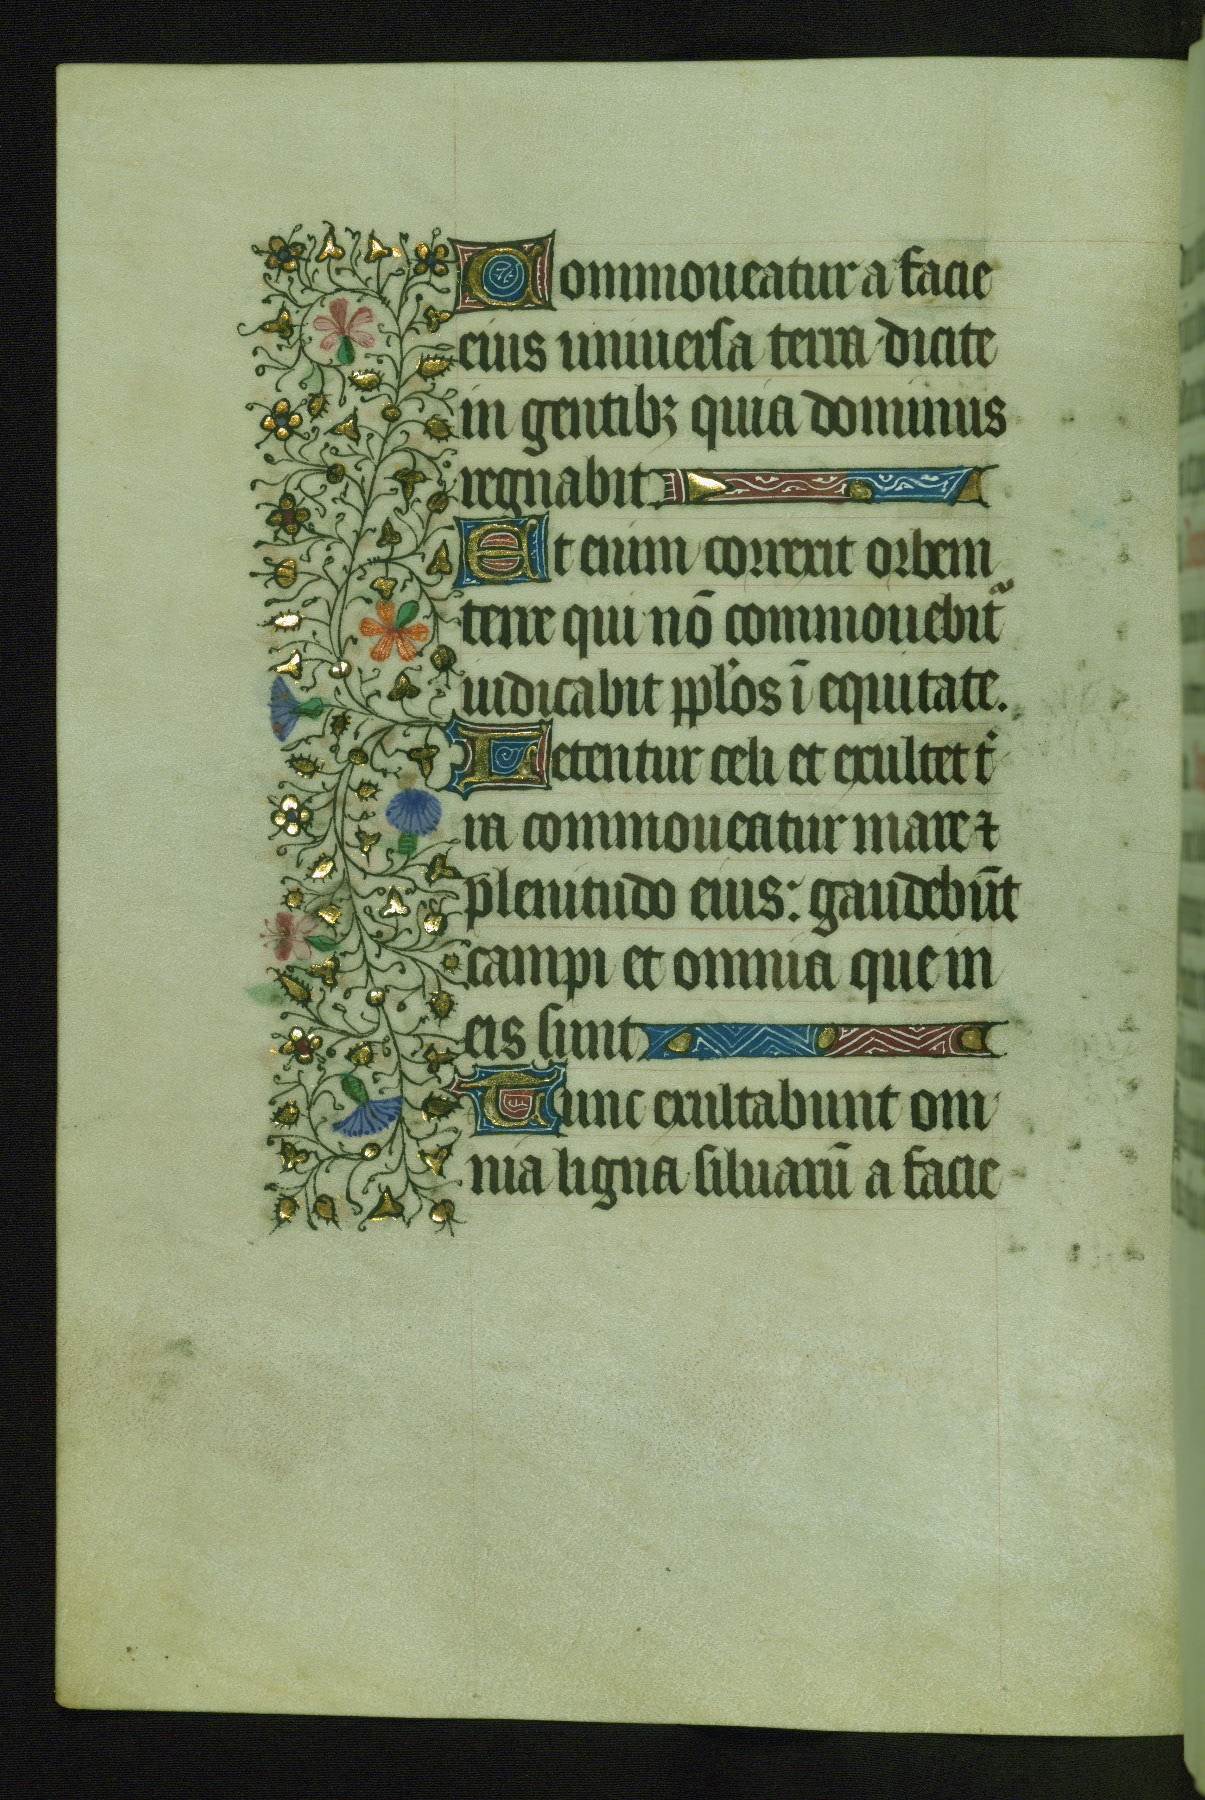 Commoueatur a facie
eius uniuersa terra dicite
in gentibꝫ quia dominus
regnabit
Et enim correxit orbem
terre qui nō commouebit᷑
iudicabit pp̃los ī equitate.
Letentur celi et exultet t᷑
ra commoueatur mare ⁊
plenitudo eius: gaudebūt
campi et omnia que in
eis sunt
Tunc exultabunt om
nia ligna siluarū a facie